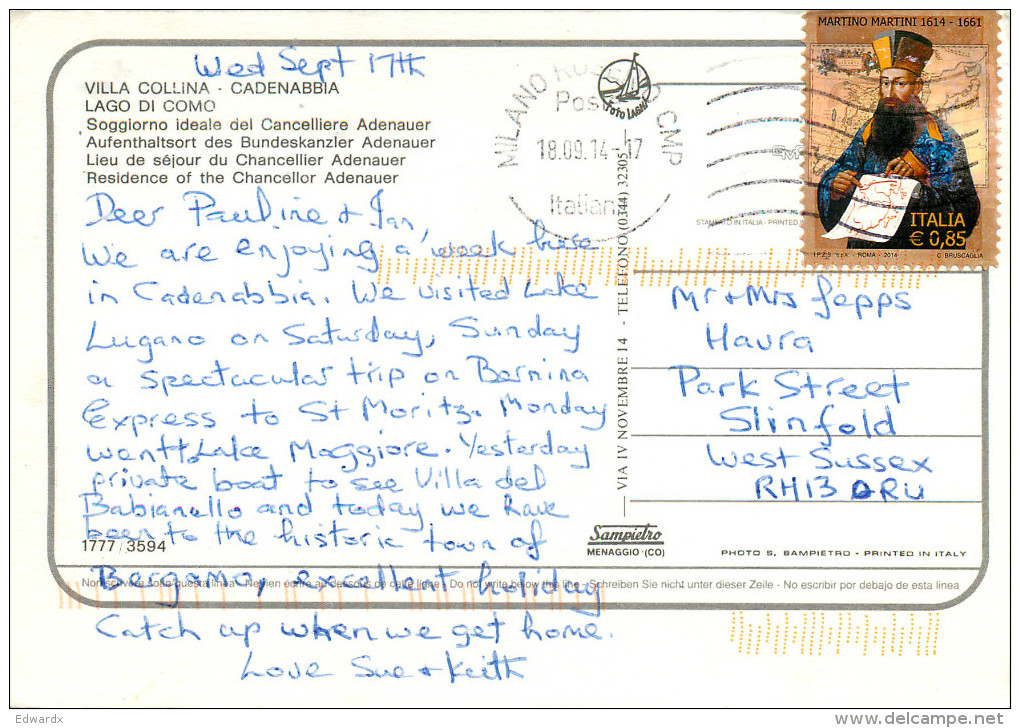 Wed Sept 17th
VILLA COLLINA - CADENABBIA
LAGO DI COMO
Soggiorno ideale del Cancelliere Adenauer
Aufenthaltsort des Bundeskanzler Adenauer
Lieu de séjour du Chancellier Adenauer
Residence of the Chancellor Adenauer
Deer Pauline + Ian,
We are enjoying a week here
in Cadenabbia. We visited Lake
Lugano on Saturday, Sunday
a spectacular trip on Bernina
Express to St Moritz. Monday
went Lake Maggiore. Yesterday
private boat to see Villa del
Babianello and today we have
been to the historic town of
1777/3594
Bergamo, excellent holiday
Non scrivere sotto questa linea - Ne rien écrire au dessous de cette ligne - Do not write below this line - Schreiben Sie nicht unter dieser Zeile - No escribir por debajo de esta linea
Catch up when we get home.
Love Sue + Keith
MILANO ROSERIO CMP
Foto LABOR
18.09.14-17
VIA IV NOVEMBRE 14 - TELEFONO (0344) 32305
STAMPATO IN ITALIA - PRINTED IN
MARTINO MARTINI 1614 - 1661
ITALIA
€ 0,85
I.P.Z.S. S.p.A. - ROMA - 2014
C. BRUSCAGLIA
Mr + Mrs Jepps
Haura
Park Street
Slinfold
West Sussex
RH13 0RU
Sampietro
MENAGGIO (CO)
PHOTO S. SAMPIETRO - PRINTED IN ITALY
Edwardx
delcampe.net